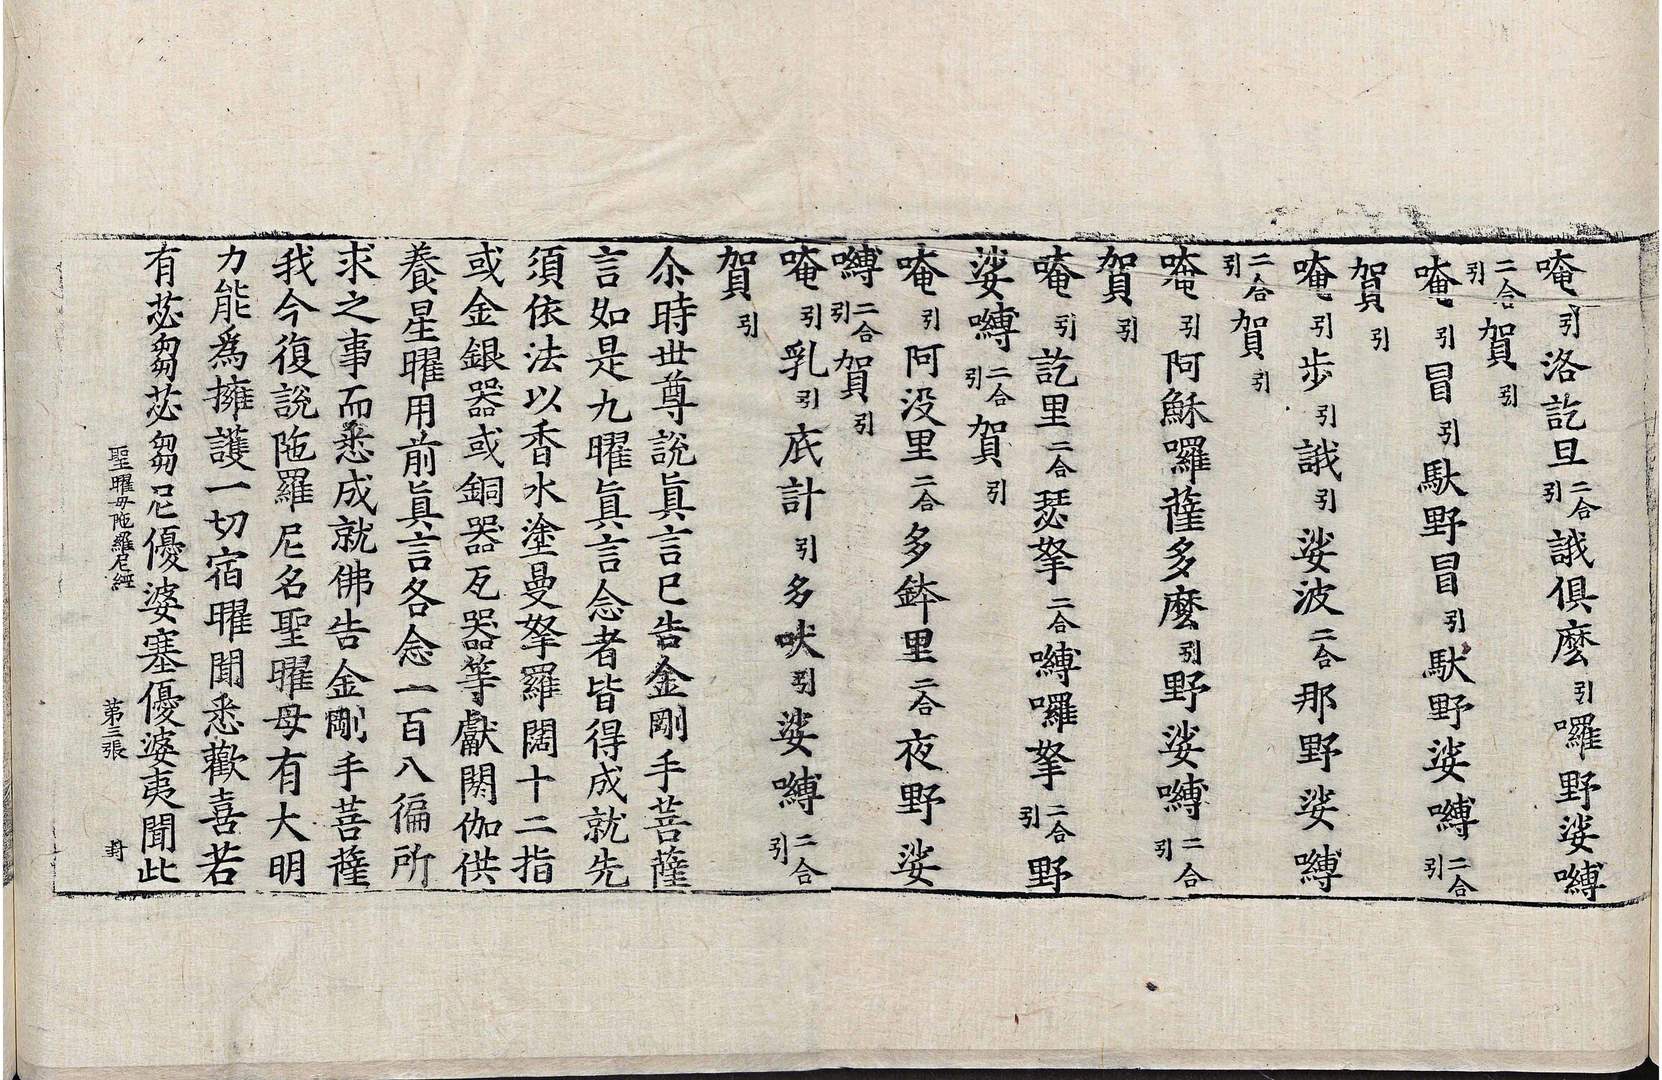 唵引洛訖旦二合引誐俱麽引囉野娑嚩
二合引賀引
唵引冒引馱野冒引馱野娑嚩二合引
賀引
唵引歩引誐引娑波二合那野娑嚩
二合引賀引
唵引阿穌囉薩多麽引野娑嚩二合引
賀引
唵引訖里二合瑟拏二合嚩囉拏二合引野
娑嚩二合引賀引
唵引阿没里二合多鉢里二合夜野娑
嚩二合引賀引
唵引乳引底計引多吠引娑嚩二合引
賀引
尒時世尊說眞言已告金剛手菩薩
言如是九曜眞言念者皆得成就先
須依法以香水塗曼拏羅闊十二指
或金銀器或銅器瓦器等獻閼伽供
養星曜用前眞言各念一百八徧所
求之事而悉成就佛告金剛手菩薩
我今復說陁羅尼名聖曜母有大明
力能爲擁護一切宿曜聞悉歡喜若
有苾芻苾芻尼優婆塞優婆夷聞此
聖曜母陁羅尼經 第三張 封